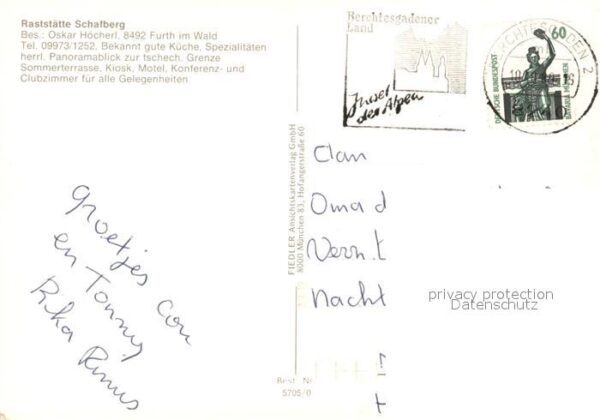 Raststätte Schafberg
Bes.: Oskar Höcherl. 8492 Furth im Wald
Tel. 09973/1252. Bekannt gute Küche, Spezialitäten
herrl. Panoramablick zur tschech. Grenze
Sommerterrasse, Kiosk, Motel, Konferenz- und
Clubzimmer für alle Gelegenheiten
Berchtesgadener
Land
Insel
der Alpen
BERCHTESGADEN 2
60
DEUTSCHE BUNDESPOST
BAVARIA MÜNCHEN
FIEDLER Ansichtskartenverlag GmbH
8000 München 83, Hofangerstraße 60
Groetjes van
en Tonny
Rika
Oma d
Nacht
privacy protection
Datenschutz
Best. Nr.
5705/0